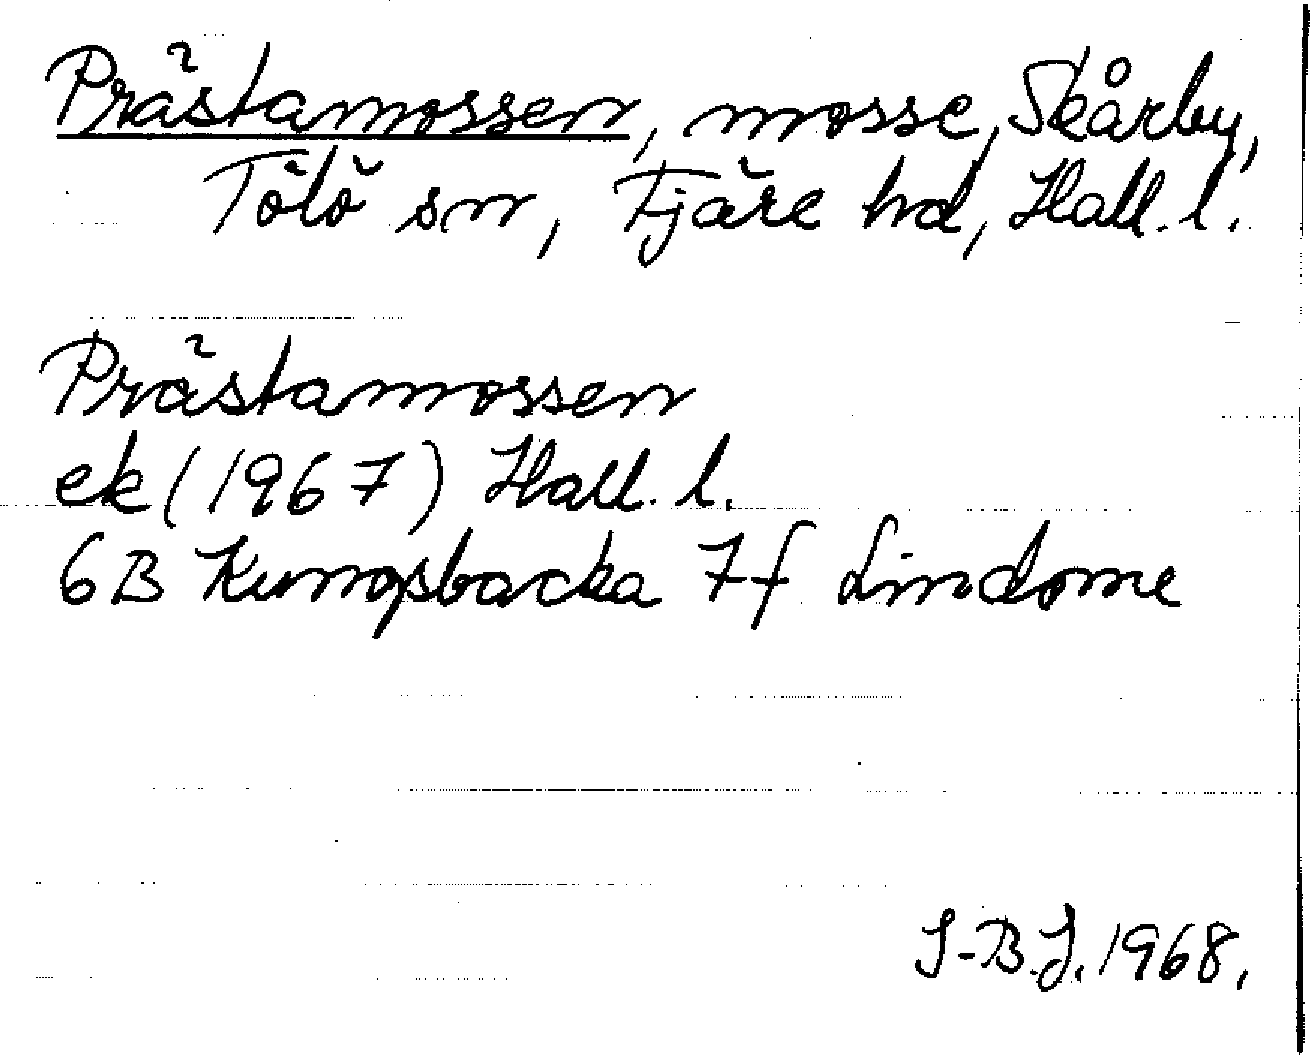 Prästamossen, mosse, Skårby,
Tölö sn, Fjäre hd, Hall. l.
Prästamossen
ek (1967) Hall. l.
6B Kungsbacka 7f Lindome
I-B.J. 1968.